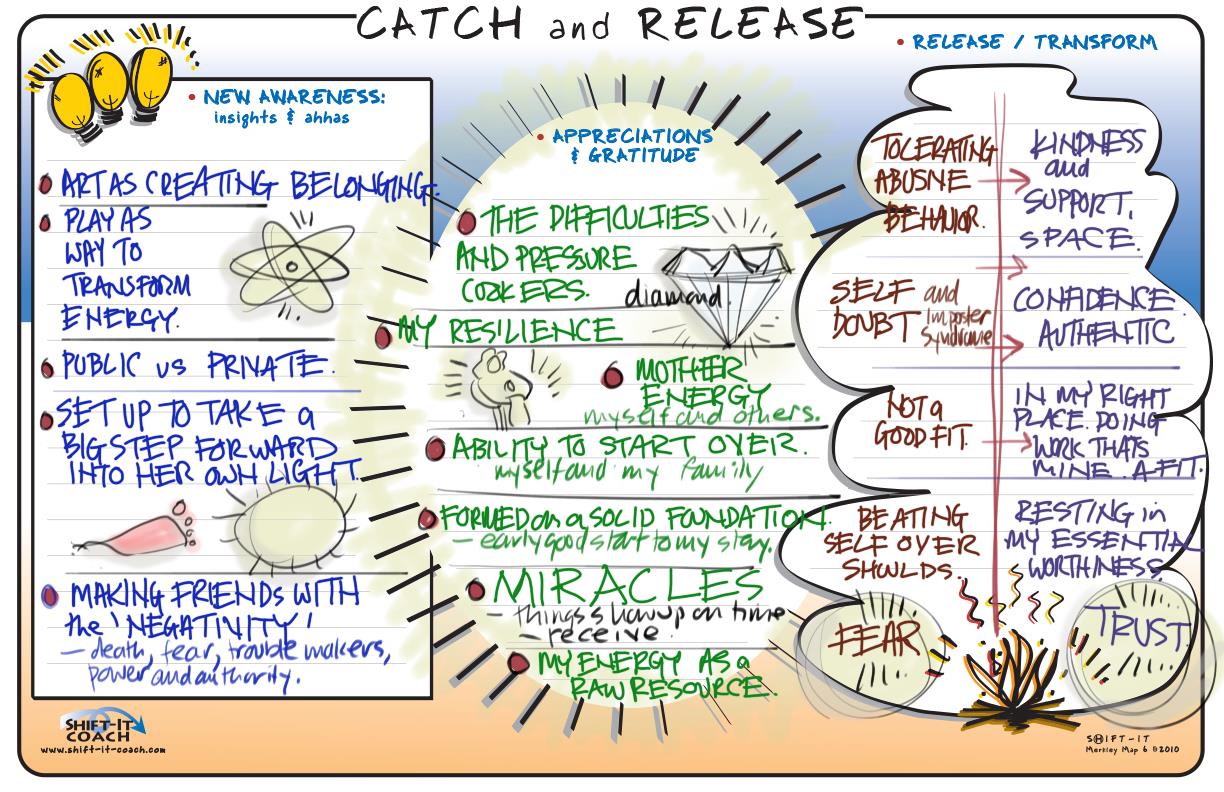 CATCH and RELEASE
• NEW AWARENESS:
insights & ahhas
ART AS CREATING BELONGING.
PLAY AS
WAY TO
TRANSFORM
ENERGY.
PUBLIC vs PRIVATE.
SET UP TO TAKE a
BIG STEP FORWARD
INTO HER OWN LIGHT.
MAKING FRIENDS WITH
the 'NEGATIVITY'
— death, fear, trouble makers,
power and authority.
• APPRECIATIONS
& GRATITUDE
THE DIFFICULTIES
AND PRESSURE
COOKERS.
diamond.
MY RESILIENCE
MOTHER
ENERGY
myself and others.
ABILITY TO START OVER.
myself and my family
FORMED on a SOLID FOUNDATION.
— early good start to my stay.
MIRACLES
— things show up on time
— receive.
MY ENERGY AS a
RAW RESOURCE.
• RELEASE / TRANSFORM
TOLERATING
ABUSIVE
BEHAVIOR.
KINDNESS
and
SUPPORT.
SPACE.
SELF and
DOUBT Imposter
Syndrome
CONFIDENCE
AUTHENTIC
NOT a
GOOD FIT.
IN MY RIGHT
PLACE. DOING
WORK THATS
MINE. A FIT.
BEATING
SELF OVER
SHOULDS.
RESTING in
MY ESSENTIAL
WORTHINESS.
FEAR
TRUST.
SHIFT-IT
COACH
www.shift-it-coach.com
SHIFT-IT
Merkley Map 6 ©2010